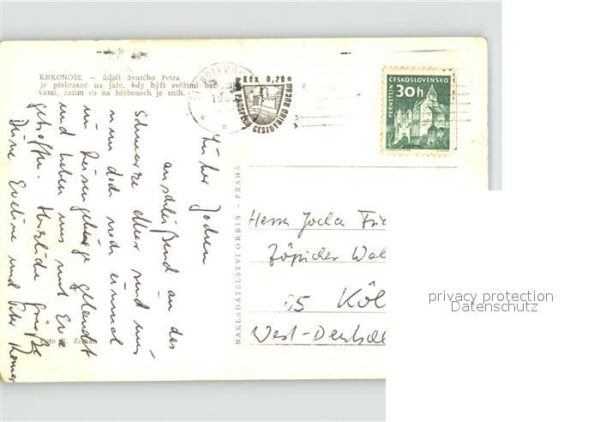 KRKONOŠE – údolí Svatého Petra
je překrásné na jaře, kdy hýří svěžími bar-
vami, zatím co na hřebenech je sníh.
Kčs 0,20
CESTOVNÍHO RUCHU
ČESKOSLOVENSKO
30h
PERNŠTEJN
Lieber Jochen
anschließend an das
Schwarze Meer sind wir
nun doch noch einmal
im Riesengebirge gelandet
und haben uns mit Eva
getroffen. Herzliche Grüße
Deine Eveline und Peter
NAKLADATELSTVÍ ORBIS – PRAHA
Herrn
Zöpicher
55 Köl
West-Deutsch
privacy protection
Datenschutz